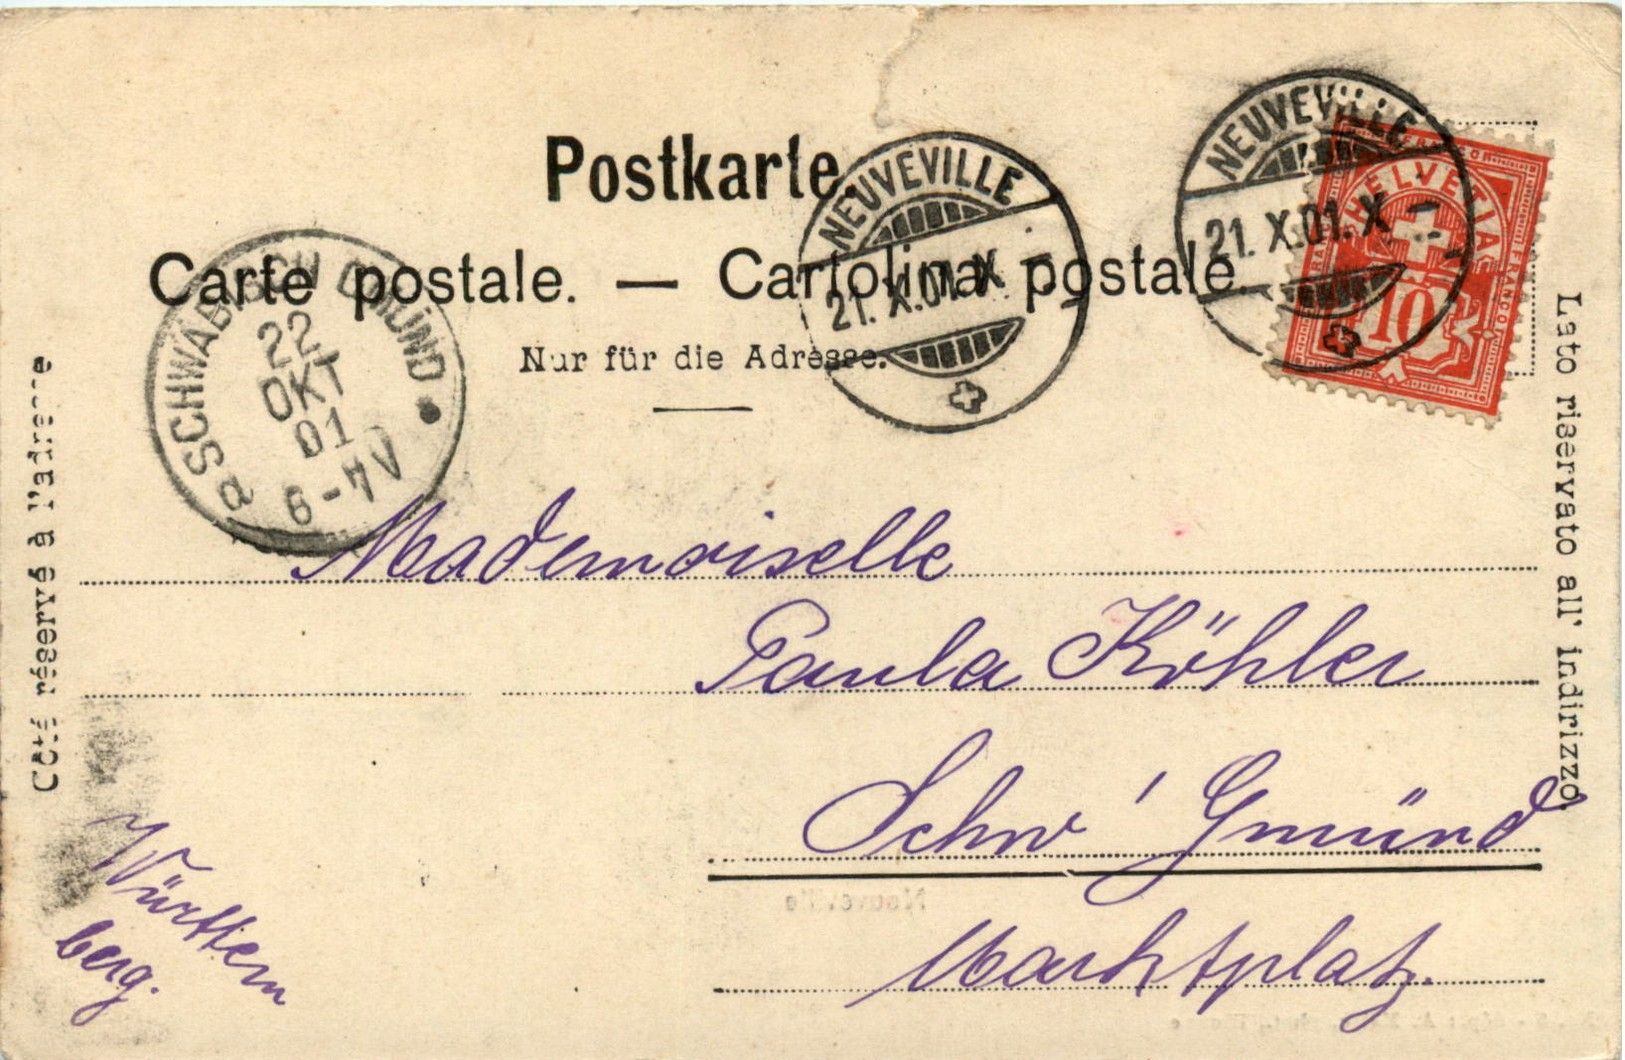 Postkarte
Carte postale. — Cartolina postale.
Nur für die Adresse.
NEUVEVILLE
21. X.01. X
NEUVEVILLE
21. X.01. X
HELVETIA
FRANCO
10
SCHWÄBISCH GMÜND
22
OKT
01
6-7V
a
Côté réservé à l'adresse
Lato riservato all' indirizzo
Mademoiselle
Paula Köhler
Schw' Gmünd
Marktplatz.
Württem
berg.
Neuveville